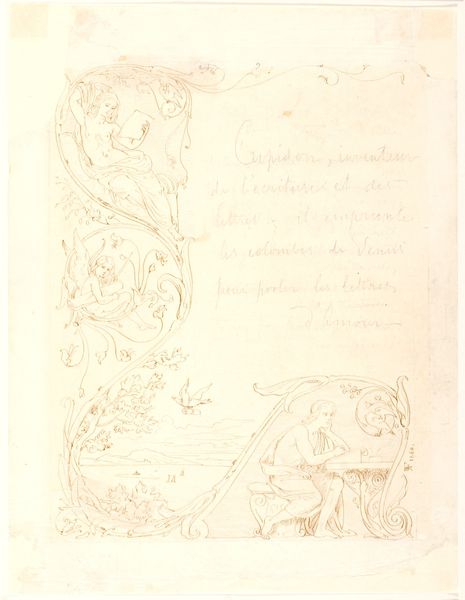 Cupidon, inventeur
de l'écritoire et des
lettres, il emprunte
les colombes de Vénus
pour porter les lettres
d'Amour